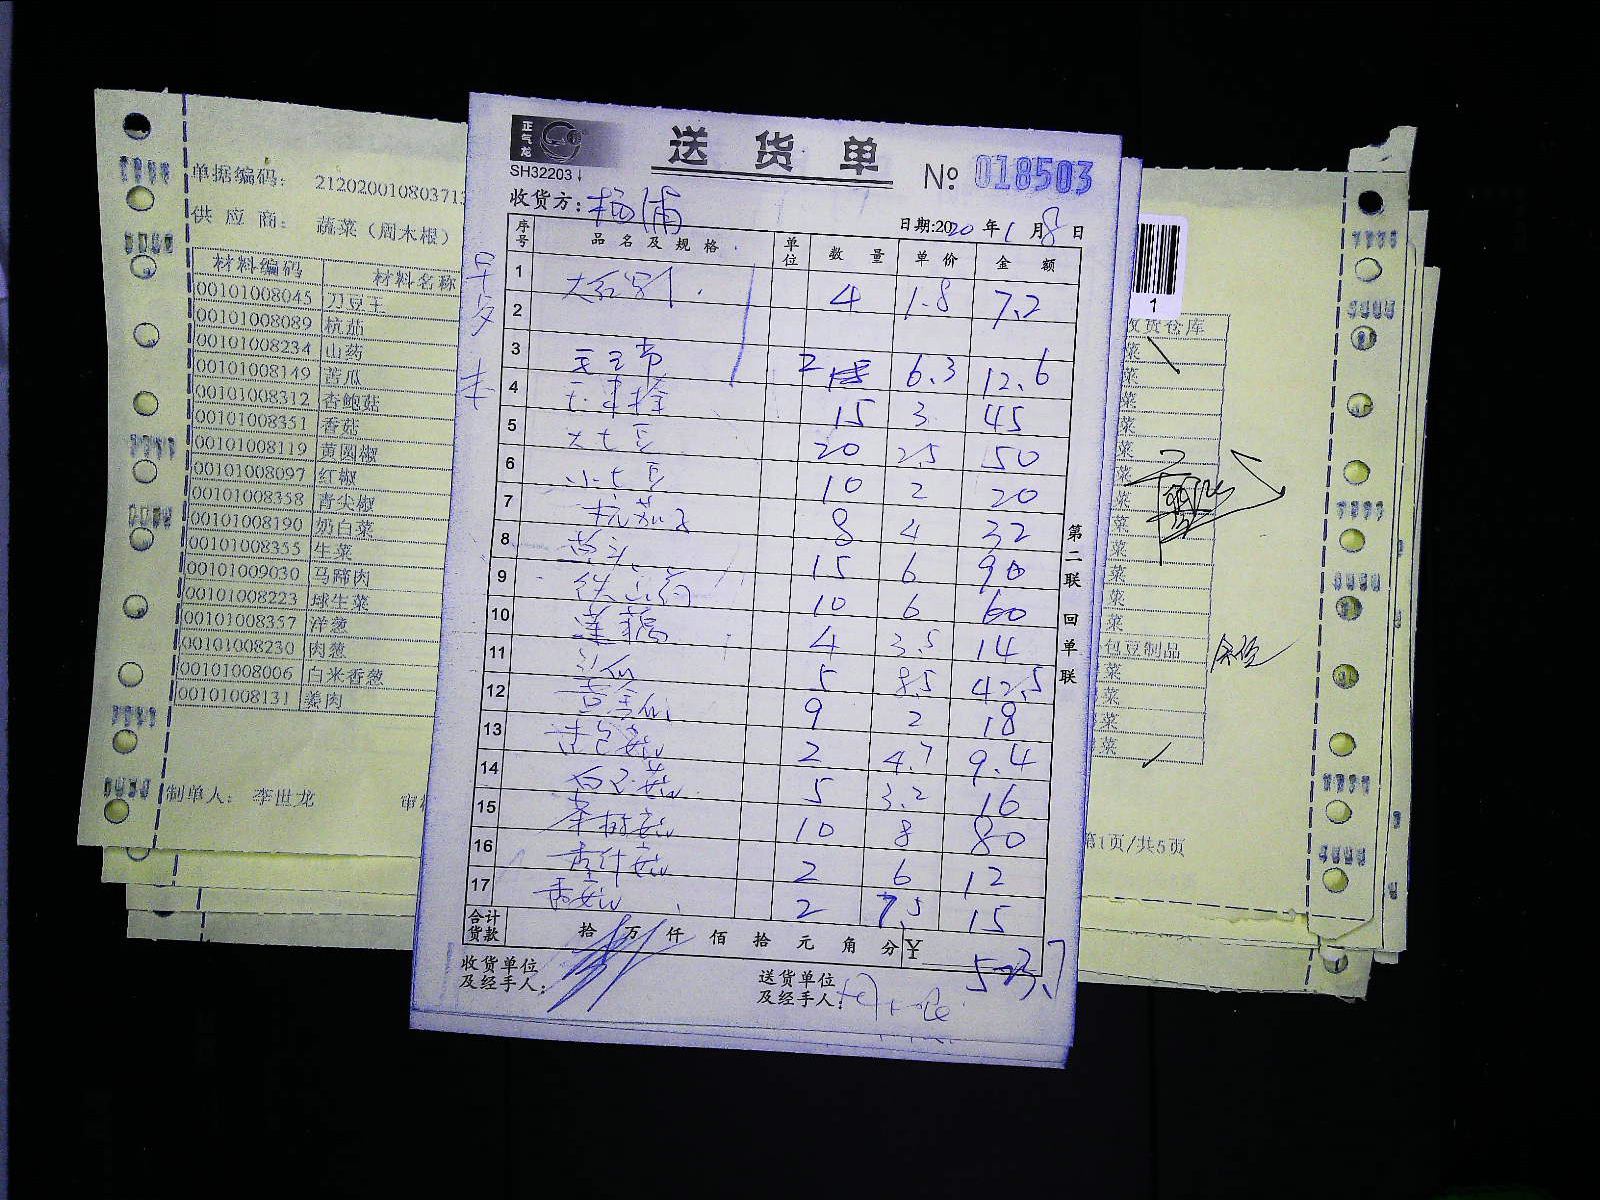 正气龙
SH32203
送货单
№ 018503
收货方: 杨浦
日期:2020年1月8日
序号 品名及规格 单位 数量 单价 金额
1 4 1.8 7.2
2
3 2 6.3 12.6
4 15 3 45
5 大土豆 20 2.5 50
6 小土豆 10 2 20
7 杭茄子 8 4 32
8 15 6 90
9 铁山药 10 6 60
10 莲藕 4 3.5 14
11 5 8.5 42.5
12 9 2 18
13 2 4.7 9.4
14 白玉菇 5 3.2 16
15 茶树菇 10 8 80
16 2 6 12
17 香菇 2 7.5 15
合计货款 拾 万 仟 佰 拾 元 角 分 ¥ 523.7
收货单位及经手人:
送货单位及经手人:
第二联 回单联
单据编码: 2120200108037
供应商: 蔬菜（周木根）
材料编码 材料名称
00101008045 刀豆王
00101008089 杭茄
00101008234 山药
00101008149 苦瓜
00101008312 杏鲍菇
00101008351 香菇
00101008119 黄圆椒
00101008097 红椒
00101008358 青尖椒
00101008190 奶白菜
00101008355 生菜
00101009030 马蹄肉
00101008223 球生菜
00101008357 洋葱
00101008230 肉葱
00101008006 白米香葱
00101008131 姜肉
制单人: 李世龙
审
1
收货仓库
菜
菜
菜
菜
菜
菜
菜
菜
菜
菜
菜
菜
包豆制品
菜
菜
菜
菜
第1页/共5页